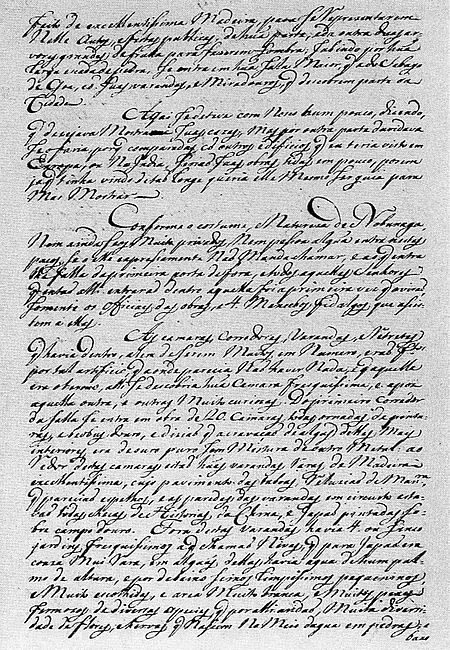 feito de excellentissima Madeira, para se Representarem
nelle Autos, e festas publicas, de hũa parte, e da outra huas ar-
vores grandes de fruta para fazerem sombra, subindo por hũa
larga escada de pedra, se entra em hũa salla Maior, q̃ a do Cabido
de Goa, cõ suas varandas, e Miradouros, q̃ descobrem parte da
Cidade.
Aqui se deteve com Nosco hum pouco, dizendo,
q̃ desejava Mostrar suas casas, Mas por outra parte duvidava
se o faria, porq̃ comparadas cõ outros edificios q̃ eu teria visto em
Europa, ou Na India, teria suas obras tidas em pouco, porem
ja q̃ tinha vindo de tão longe queria elle Mesmo ser guia para
Mas Mostrar.
Conforme o costume, e Natureza de Nobunaga,
Nem ainda seus Muito privados, Nem pessoa algũa entra nestes
paços, se o elle expressamente Não Manda chamar, e aos q̃ entrão
lhe falla da primeira porta de fora, e todos aquelles Senhores
entrarão dentro aquella foi a primeira vez, e ouvirão
somente os Officiaes das obras, e 4 Mancebos fidalgos, que assis-
tem a elles.
As camaras, Corredores, Varandas, e Retretes
q̃ havia dentro, alem de serem Muitos em Numero, erão feitos
por tal artificio, q̃ aonde parecia Não haver Nada, e q̃ aquelle
era o termo, alli se descobria hũa Camara fresquissima, e apos
aquella outra, e outras Muito curiosas. Do primeiro Corredor
da salla se entra em obra de 20. Camaras, todas ornadas de pintu-
ras, e biobus de ouro, e dizião q̃ a cravação de algũas dellas Mais
interiores era de ouro puro, sem Mistura de outro Metal: ao
redor destas camaras estão hũas varandas raras, de Madeira
excellentissima, cujo pavimento das taboas reluzião de Maneira
q̃ parecião espelhos, e as paredes das varandas em circuito esta-
vão todas cheas de Historias, da China, e Japão pintadas so-
bre campo de ouro. Fora destas varandas havia 4. ou Sinco
jardins, fresquissimos, a q̃ chamão Nivas, q̃ para Japão era
couza Mui rara, em algũas dellas havia agua de hum pal-
mo de altura, e por debaixo seixos limpissimos pequeninos,
e Muito escolhidos, e area Muito branca, e Muitos peixes
fermosos de diversas especies, q̃ por alli andão, Muita diversi-
dade de flores, e hervas, q̃ Nasciam No Meio dagua, em pedras; a